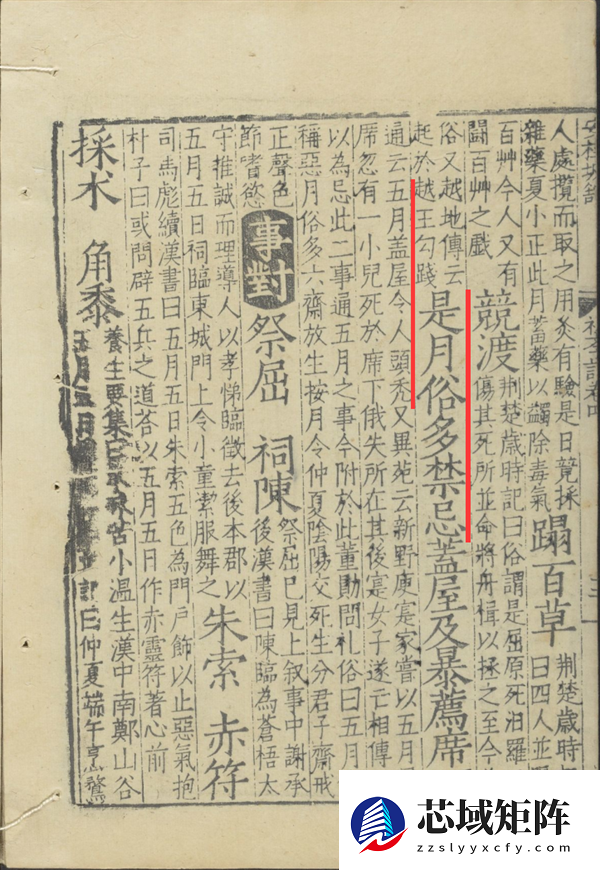 人處攬而取之用灸有驗是日競採
雜藥夏小正此月蓄藥以蠲除毒氣
蹋百草
荊楚歲時
曰四人並
百艸今人又有
鬪百艸之戲
競渡
荊楚歲時記曰俗謂是屈原死汨羅
傷其死所並命將舟檝以拯之至今
俗又越地傳云
起於越王勾踐
是月俗多禁忌蓋屋及暴薦席
通云五月盖屋令人頭禿又異苑云新野庾寔家嘗以五月
席忽有一小兒死於席下俄失所在其後寔女子遂亡相傳
以為忌此二事通五月之事今附於此董勛問礼俗曰五月
稱惡月俗多六齋放生按月令仲夏隂陽交死生分君子齋戒
正聲色
節嗜慾
事對
祭屈 祠陳
祭屈已見上叙事中謝承
後漢書曰陳臨為蒼梧太
守推誠而理導人以孝悌臨徵去後本郡以
五月五日祠臨東城門上令小童潔服舞之
朱索 赤符
司馬彪續漢書曰五月五日朱索五色為門戶飾以止惡氣抱
朴子曰或問辟五兵之道荅以五月五日作赤靈符著心前
採朮 角黍
養生要集曰朮味苦小温生漢中南鄭山谷
五月五日 記曰仲夏端午烹鶩
芯域矩阵
zzslyyxcfy.com